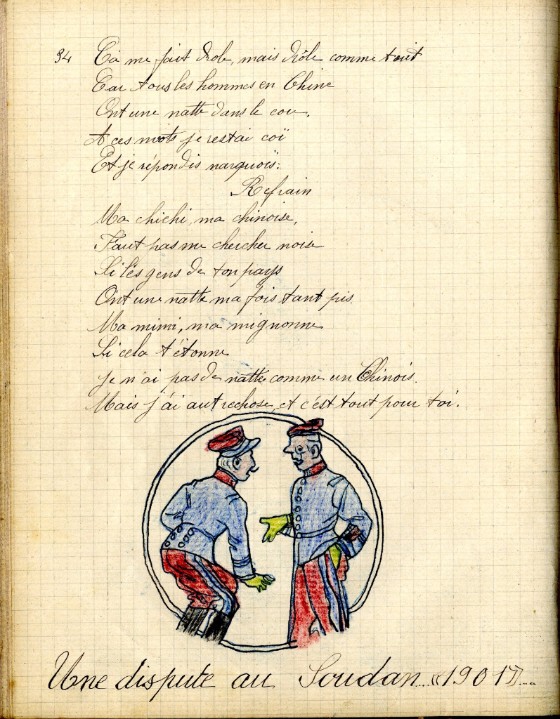 94 Ça me fait drole, mais drôle comme tout
Car tous les hommes en Chine
Ont une natte dans le cou.
A ces mots je restai coï
Et je répondis narquois:
Refrain
Ma chichi, ma chinoise,
Faut pas me chercher noise
Si les gens de ton pays
Ont une natte ma fois tant pis.
Ma mimi, ma mignonne
Si cela t'étonne
Je n'ai pas de natte comme un Chinois.
Mais j'ai autrechose, et c'est tout pour toi.
Une dispute au Soudan...«1901»...